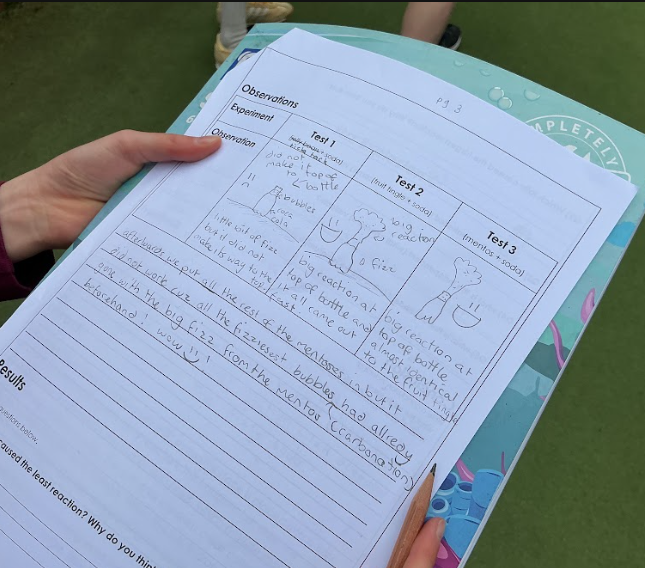 pg 3
Observations
Experiment
Test 1
+ soda)
tick tack
Test 2
(fruit tingle + soda)
Test 3
(mentos + soda)
Observation
did not
make it top of
to bottle
bubbles
coca
cola
little bit of fizz
but it did not
make its way to the
top
big
reaction
fizz
big reaction at
top of bottle and
it all came out
fast.
big reaction at
top of bottle
almost identical
to the fruit tingle
afterwards we put all the rest of the mentosses in but it
did not work cuz all the fizziesest bubbles had allready
gone with the big fizz from the mentos (carbonation)
beforehand! wow!
Results
questions below.
caused the least reaction? Why do you thin
MPLETELY